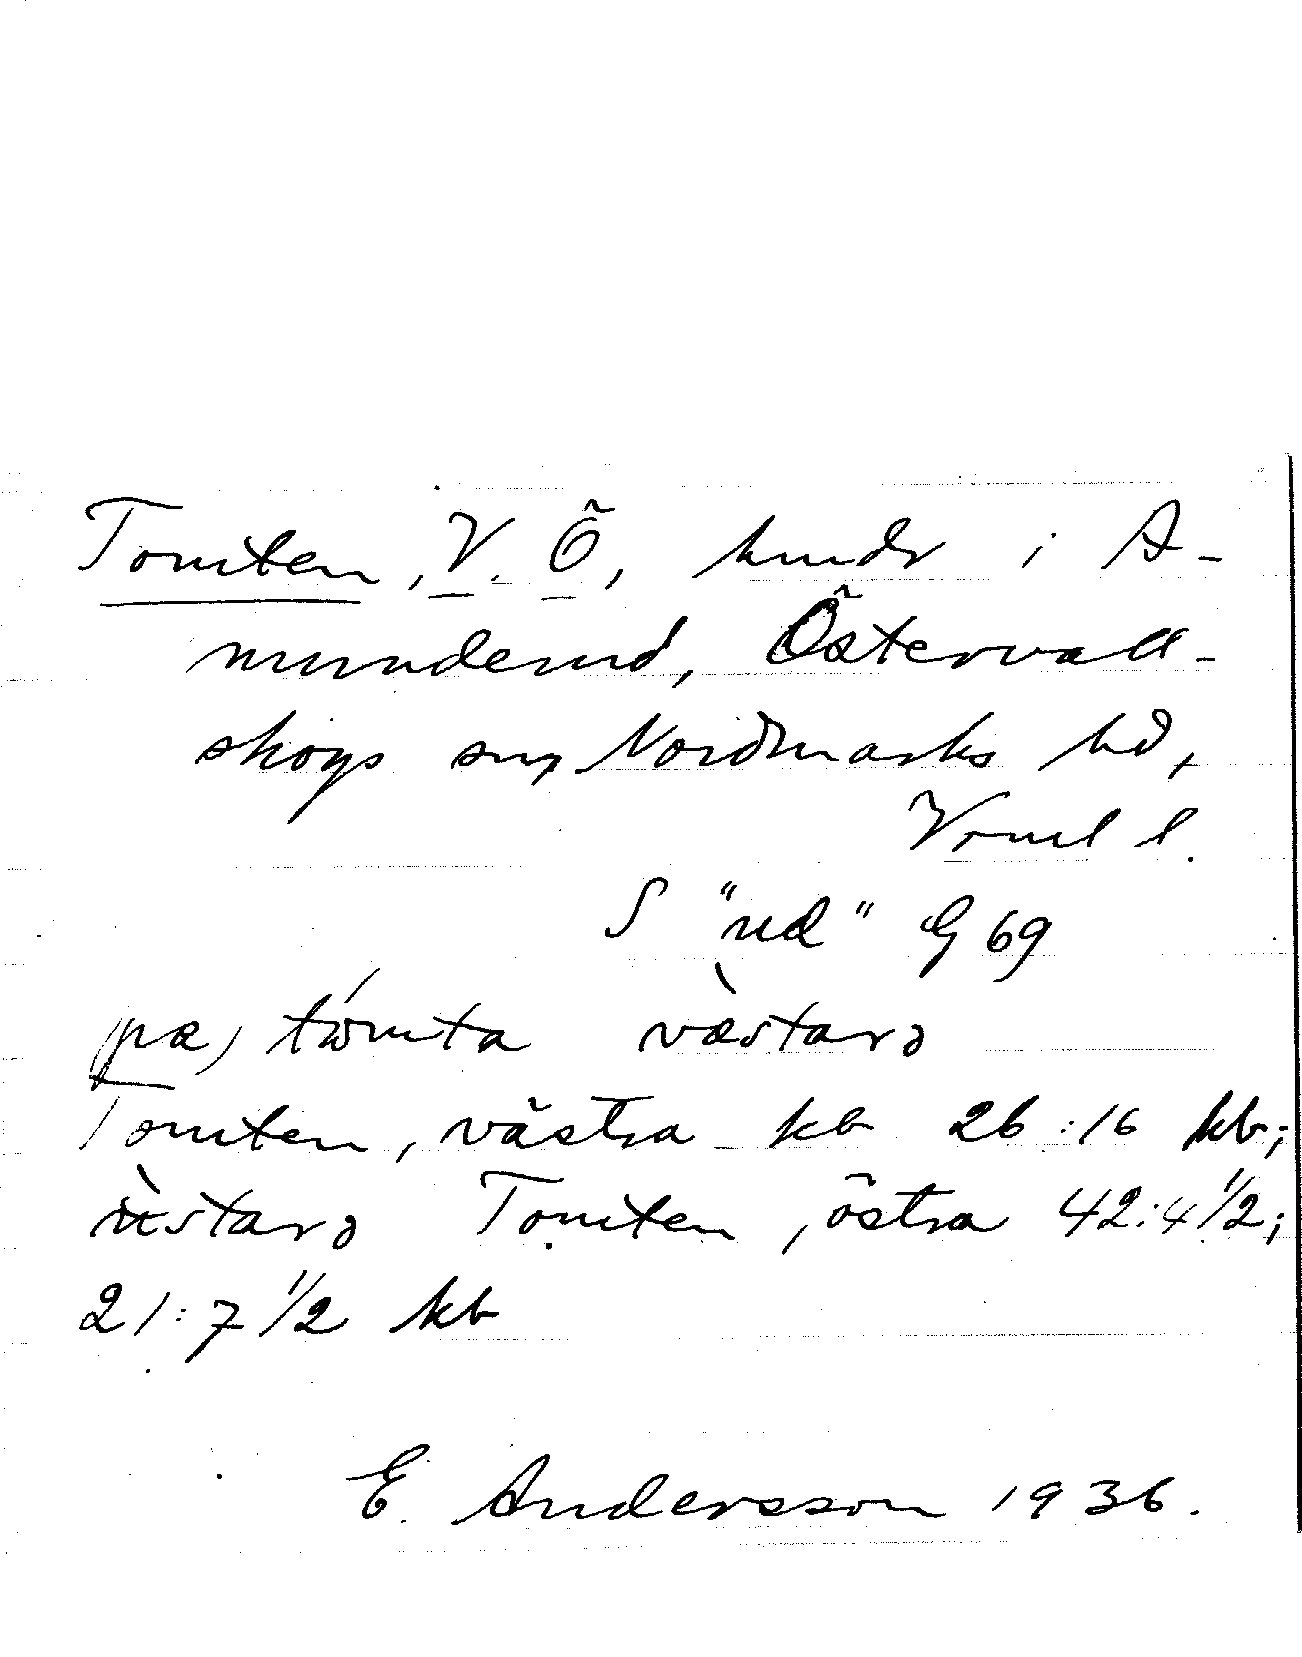 Tomten, V. Ö, hmdr i A-
munderud, Östervall-
skogs sn, Nordmarks hd,
Vrml l.
S "ud" G 69
(pæ) tómta væ̀starə
Tomten, västra kb 26:16 kb;
ùstarə Tomten, östra 42:4 1/2;
21:7 1/2 kb
E. Andersson 1936.